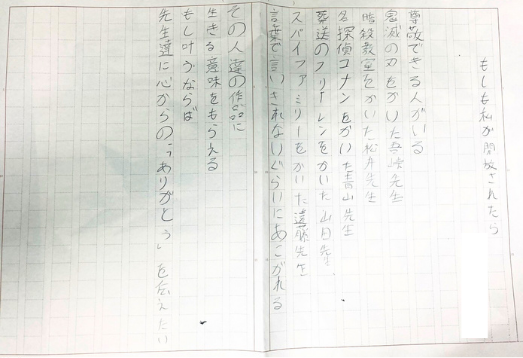 もしも私が開校されたら
尊敬できる人がいる
鬼滅の刃をかいた吾峠先生
暗殺教室をかいた松井先生
名探偵コナンをかいた青山先生
葬送のフリーレンをかいた山田先生
スパイファミリーをかいた遠藤先生
言葉で言いきれないぐらいにあこがれる
その人達の作品に
生きる意味をもらえる
もし叶うならば
先生達に心からの「ありがとう」を伝えたい